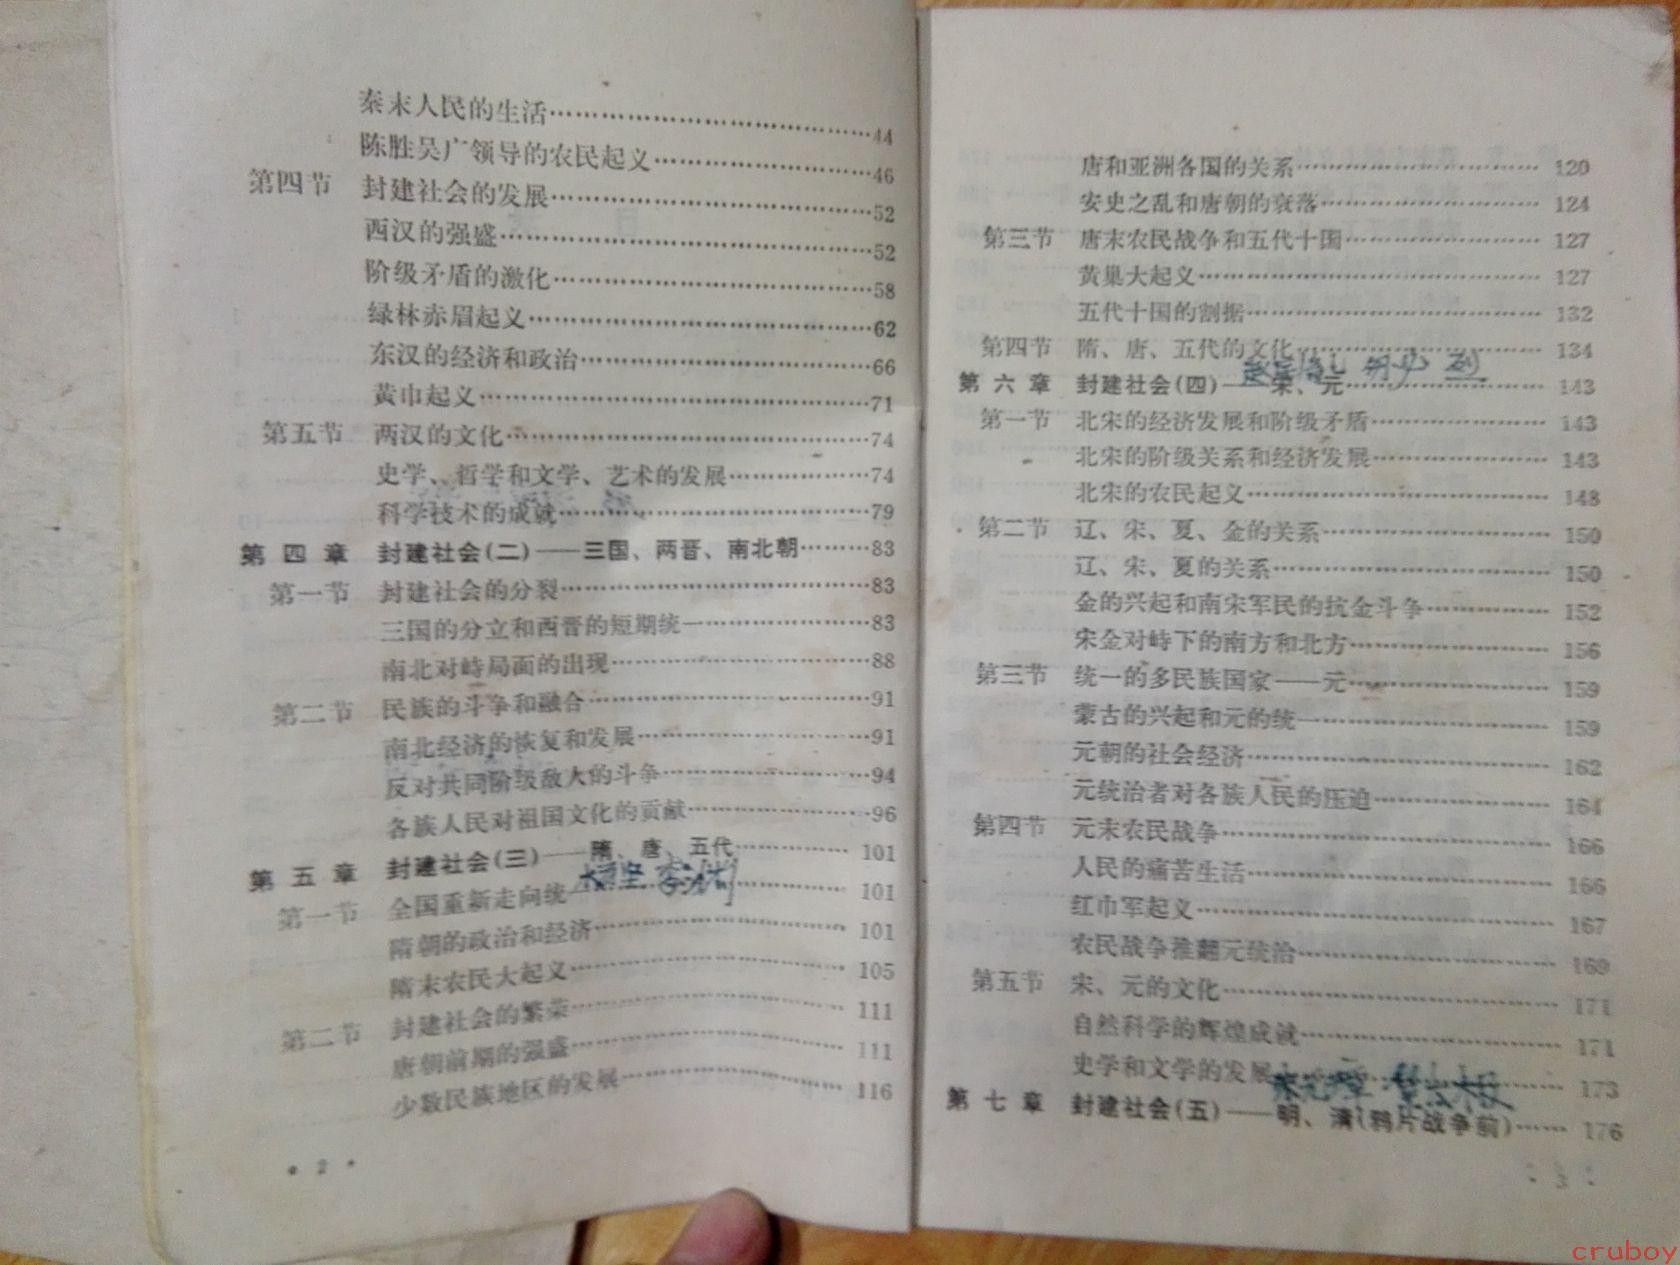 秦末人民的生活……44
陈胜吴广领导的农民起义……46
第四节 封建社会的发展……52
西汉的强盛……52
阶级矛盾的激化……58
绿林赤眉起义……62
东汉的经济和政治……66
黄巾起义……71
第五节 两汉的文化……74
史学、哲学和文学、艺术的发展……74
科学技术的成就……79
第四章 封建社会(二)——三国、两晋、南北朝……83
第一节 封建社会的分裂……83
三国的分立和西晋的短期统一……83
南北对峙局面的出现……88
第二节 民族的斗争和融合……91
南北经济的恢复和发展……91
反对共同阶级敌人的斗争……94
各族人民对祖国文化的贡献……96
第五章 封建社会(三)——隋、唐、五代……101
第一节 全国重新走向统一……101
隋朝的政治和经济……101
隋末农民大起义……105
第二节 封建社会的繁荣……111
唐朝前期的强盛……111
少数民族地区的发展……116
• 2 •
唐和亚洲各国的关系……120
安史之乱和唐朝的衰落……124
第三节 唐末农民战争和五代十国……127
黄巢大起义……127
五代十国的割据……132
第四节 隋、唐、五代的文化……134
第六章 封建社会(四)——宋、元……143
第一节 北宋的经济发展和阶级矛盾……143
北宋的阶级关系和经济发展……143
北宋的农民起义……148
第二节 辽、宋、夏、金的关系……150
辽、宋、夏的关系……150
金的兴起和南宋军民的抗金斗争……152
宋金对峙下的南方和北方……156
第三节 统一的多民族国家——元……159
蒙古的兴起和元的统一……159
元朝的社会经济……162
元统治者对各族人民的压迫……164
第四节 元末农民战争……166
人民的痛苦生活……166
红巾军起义……167
农民战争推翻元统治……169
第五节 宋、元的文化……171
自然科学的辉煌成就……171
史学和文学的发展……173
第七章 封建社会(五)——明、清(鸦片战争前)……176
• 3 •
cruboy